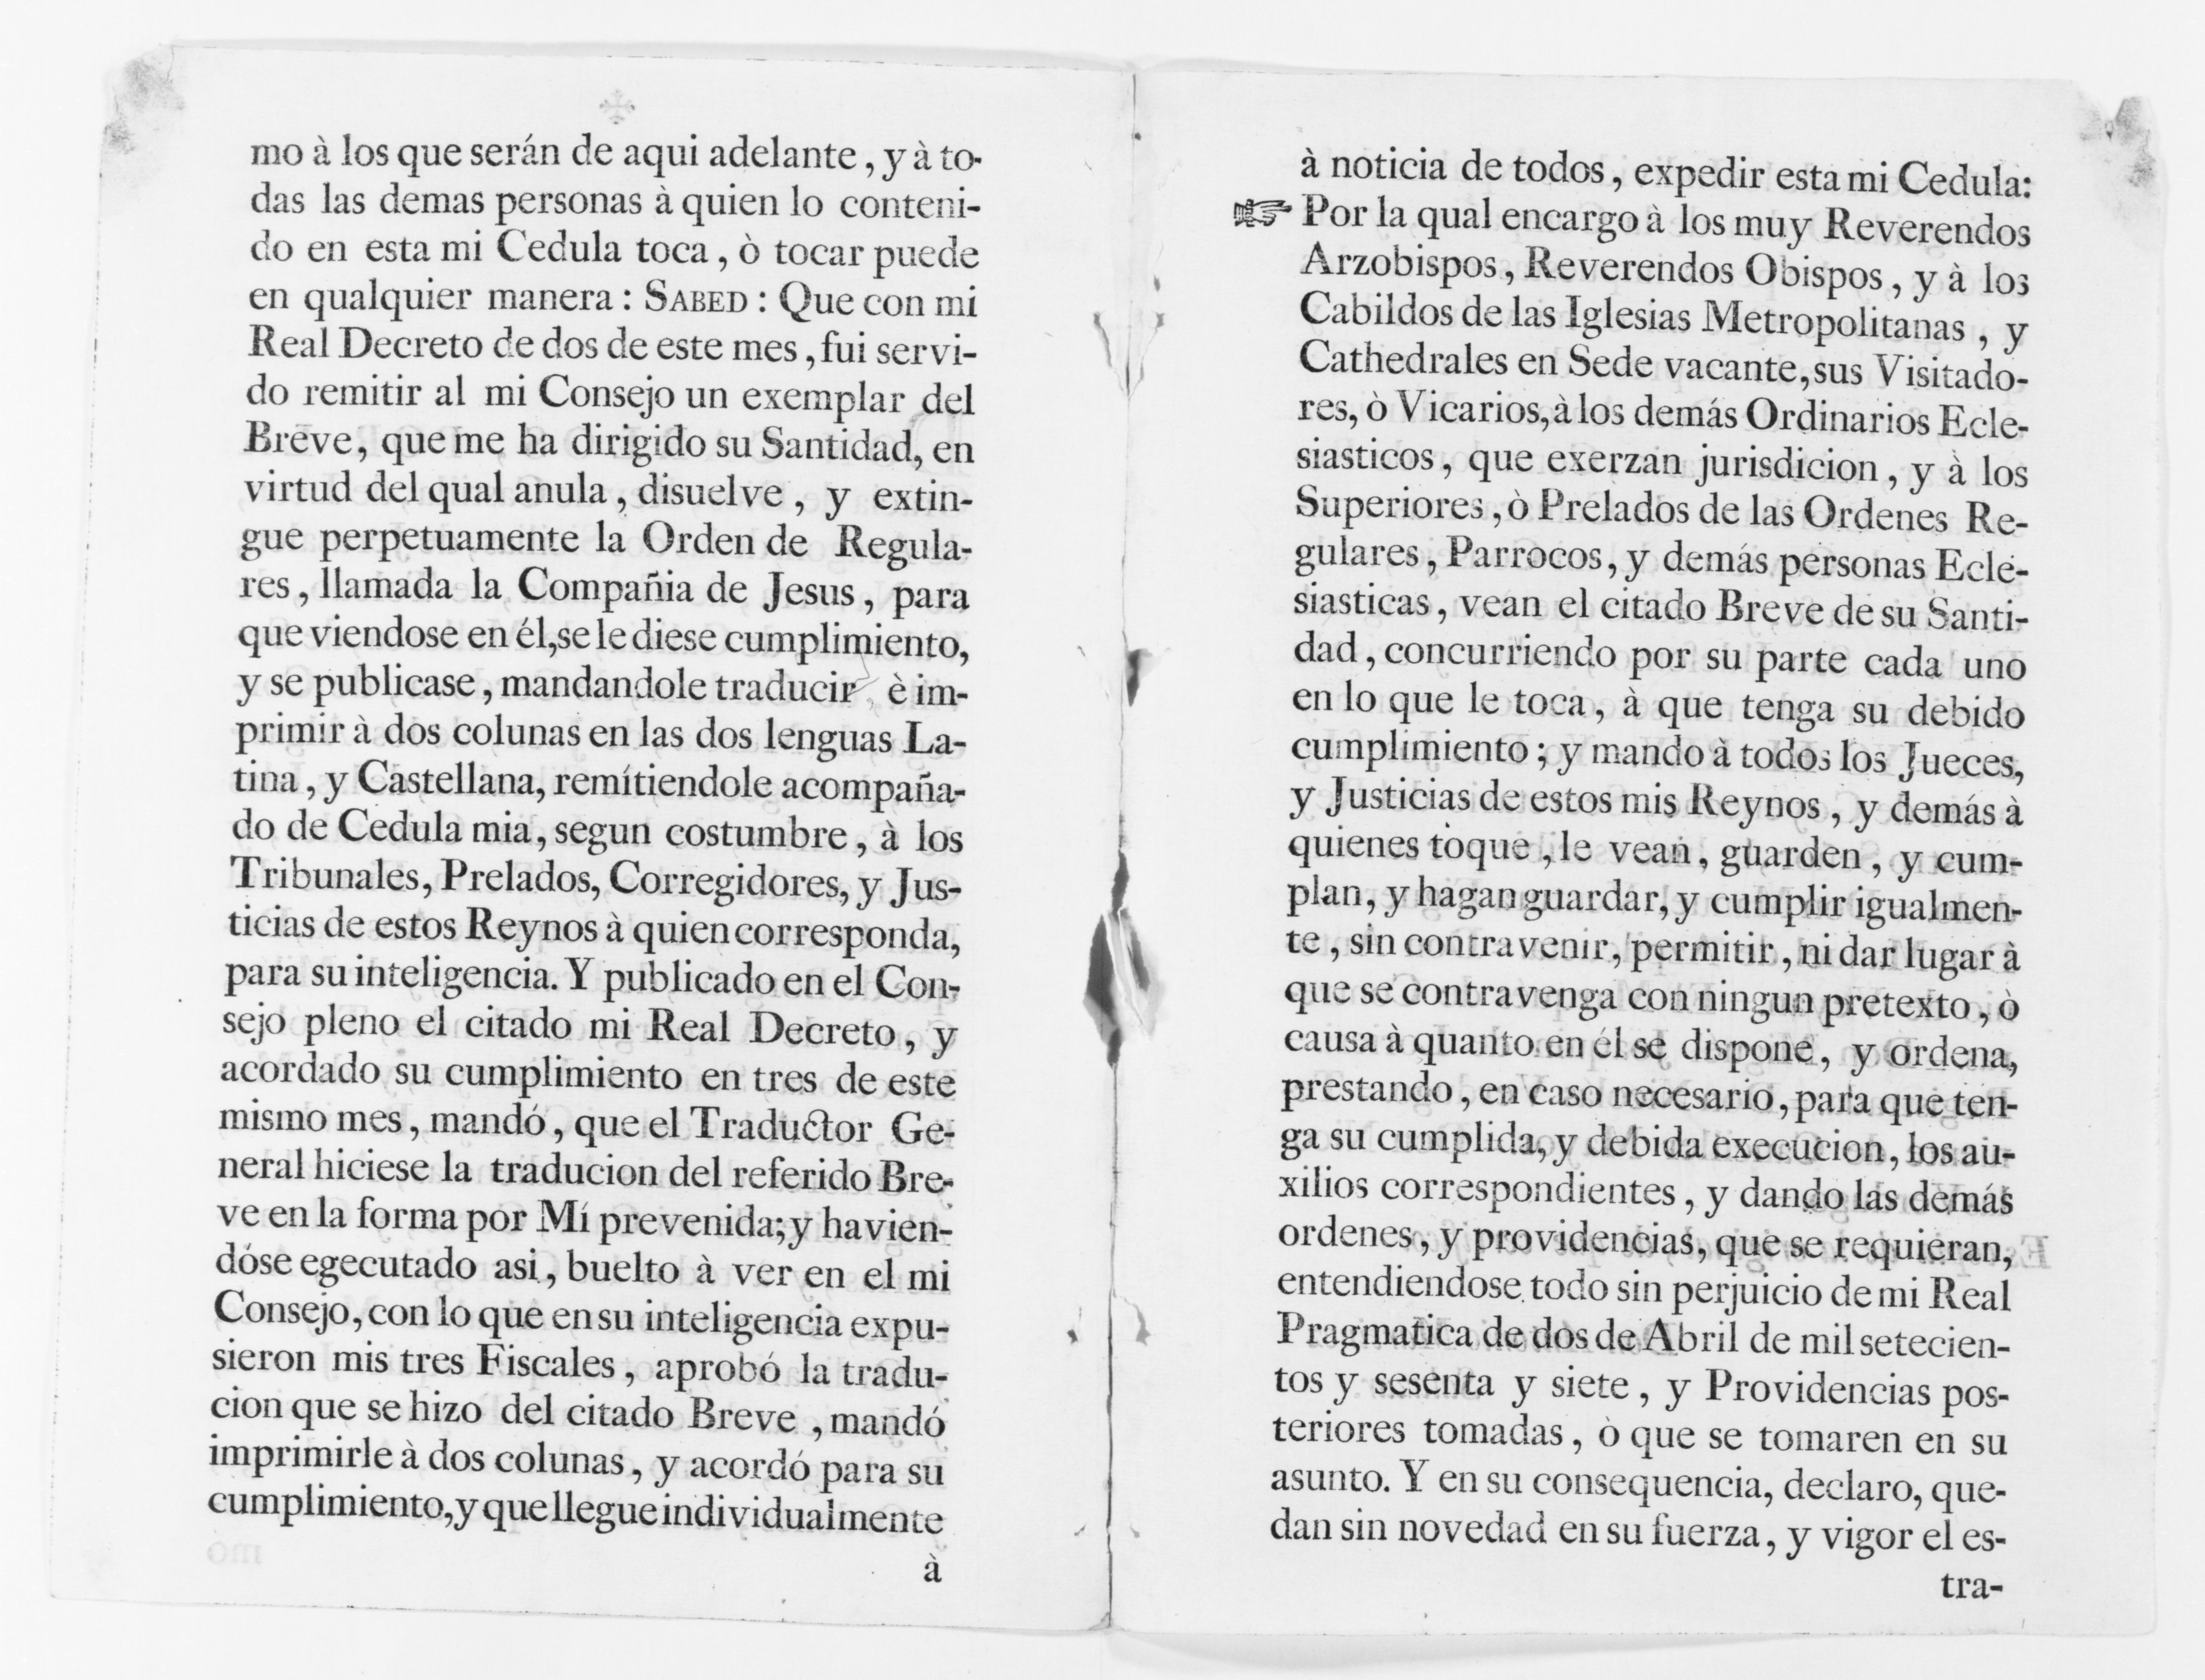 mo à los que serán de aqui adelante, y à to-
das las demas personas à quien lo conteni-
do en esta mi Cedula toca, ò tocar puede
en qualquier manera: SABED: Que con mi
Real Decreto de dos de este mes, fui servi-
do remitir al mi Consejo un exemplar del
Breve, que me ha dirigido su Santidad, en
virtud del qual anula, disuelve, y extin-
gue perpetuamente la Orden de Regula-
res, llamada la Compañia de Jesus, para
que viendose en él, se le diese cumplimiento,
y se publicase, mandandole traducir, è im-
primir à dos colunas en las dos lenguas La-
tina, y Castellana, remítiendole acompaña-
do de Cedula mia, segun costumbre, à los
Tribunales, Prelados, Corregidores, y Jus-
ticias de estos Reynos à quien corresponda,
para su inteligencia. Y publicado en el Con-
sejo pleno el citado mi Real Decreto, y
acordado su cumplimiento en tres de este
mismo mes, mandó, que el Traductor Ge-
neral hiciese la traducion del referido Bre-
ve en la forma por Mí prevenida; y havien-
dose egecutado asi, buelto à ver en el mi
Consejo, con lo que en su inteligencia expu-
sieron mis tres Fiscales, aprobó la tradu-
cion que se hizo del citado Breve, mandó
imprimirle à dos colunas, y acordó para su
cumplimiento, y que llegue individualmente
à
à noticia de todos, expedir esta mi Cedula:
☞ Por la qual encargo à los muy Reverendos
Arzobispos, Reverendos Obispos, y à los
Cabildos de las Iglesias Metropolitanas, y
Cathedrales en Sede vacante, sus Visitado-
res, ò Vicarios, à los demás Ordinarios Ecle-
siasticos, que exerzan jurisdicion, y à los
Superiores, ò Prelados de las Ordenes Re-
gulares, Parrocos, y demás personas Ecle-
siasticas, vean el citado Breve de su Santi-
dad, concurriendo por su parte cada uno
en lo que le toca, à que tenga su debido
cumplimiento; y mando à todos los Jueces,
y Justicias de estos mis Reynos, y demás à
quienes toque, le vean, guarden, y cum-
plan, y hagan guardar, y cumplir igualmen-
te, sin contravenir, permitir, ni dar lugar à
que se contravenga con ningun pretexto, ò
causa à quanto en él se dispone, y ordena,
prestando, en caso necesario, para que ten-
ga su cumplida, y debida execucion, los au-
xilios correspondientes, y dando las demás
ordenes, y providencias, que se requieran,
entendiendose todo sin perjuicio de mi Real
Pragmatica de dos de Abril de mil setecien-
tos y sesenta y siete, y Providencias pos-
teriores tomadas, ò que se tomaren en su
asunto. Y en su consequencia, declaro, que-
dan sin novedad en su fuerza, y vigor el es-
tra-